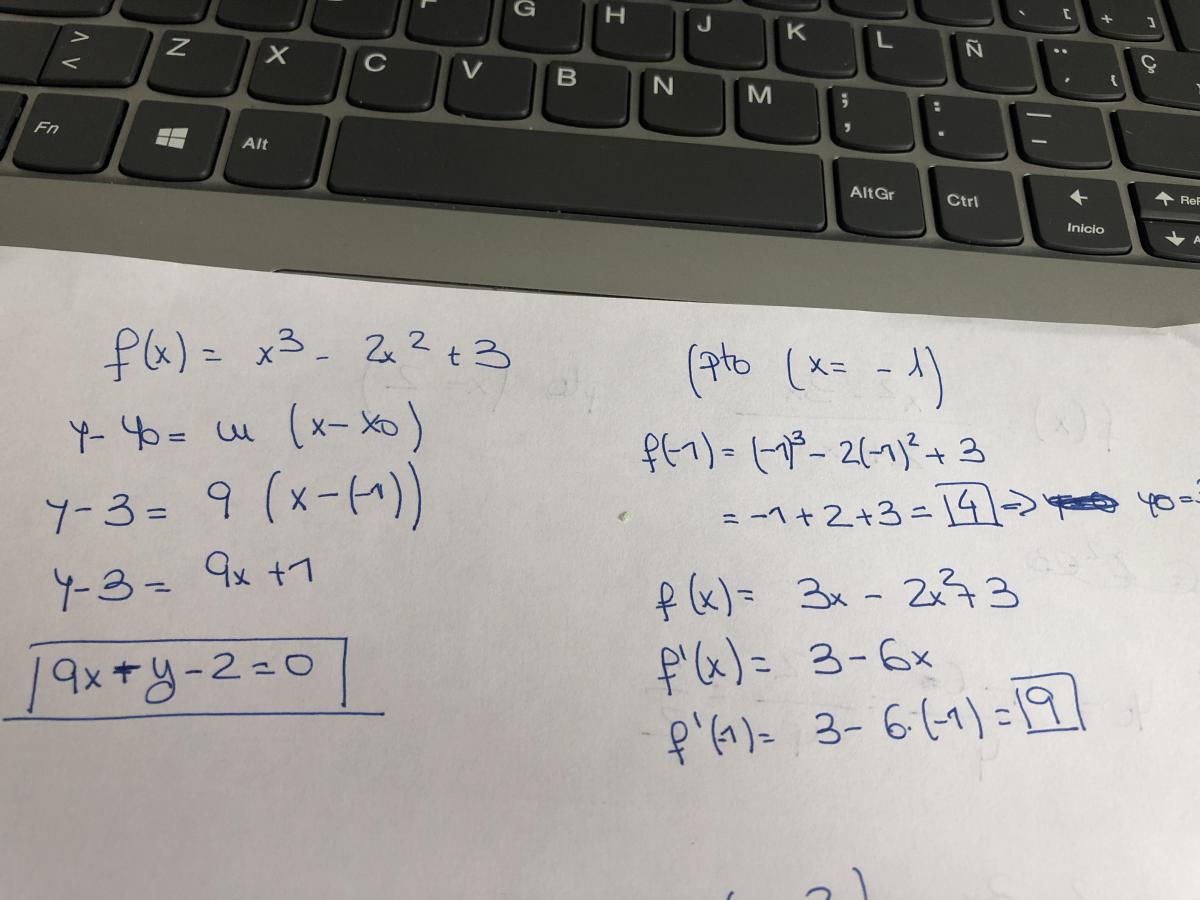 F G H J K L Ñ
` [ + ] ¨ ´ { Ç
> < Z X C V B N M ; , : . _ -
Fn Alt AltGr Ctrl Inicio
f(x) = x³ - 2x² + 3
y - y0 = m (x - x0)
y - 3 = 9 (x - (-1))
y - 3 = 9x + 1
9x + y - 2 = 0
(pto (x = -1)
f(-1) = (-1)³ - 2(-1)² + 3
= -1 + 2 + 3 = 4 => y0 = 3
f(x) = 3x - 2x² + 3
f'(x) = 3 - 6x
f'(-1) = 3 - 6·(-1) = 9